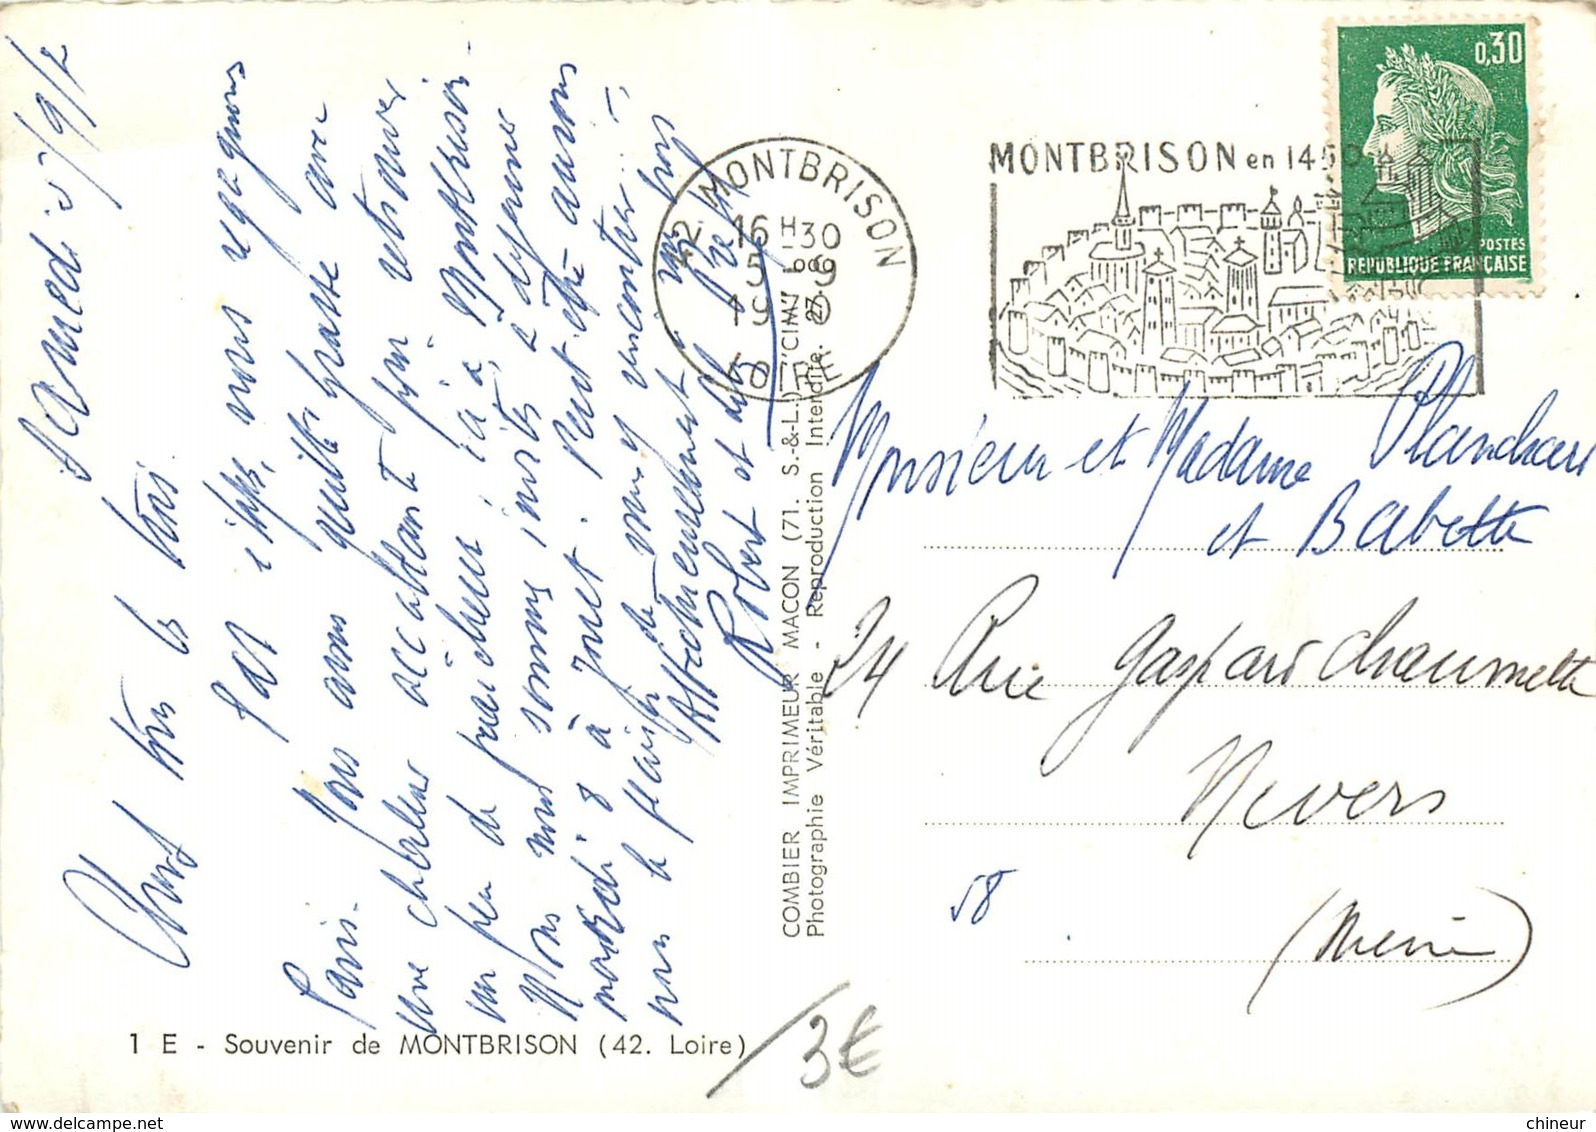 Samedi 5/9/
Chers tous les trois
Par étapes, nous regagnons
Paris. Nous avons quitté Grasse avec
une chaleur accablante pour retrouver
un peu de fraîcheur ici à Montbrison.
Nous nous sommes invités à déjeuner
mardi 8 à Jouet. Peut-être aurons
nous le plaisir de vous y rencontrer.
Affectueusement à vous trois
Robert et
MONTBRISON
42
16 H 30
5 - 9
19
LOIRE
MONTBRISON en 1450
0,30
POSTES
REPUBLIQUE FRANÇAISE
COMBIER IMPRIMEUR MACON (71. S.-&-L.) "CIM"
Photographie Véritable - Reproduction Interdite.
Monsieur et Madame Planchard
et Babette
24 Rue Gaspard Chaumette
Nevers
58
(Nièvre)
1 E - Souvenir de MONTBRISON (42. Loire)
3€
www.delcampe.net
chineur